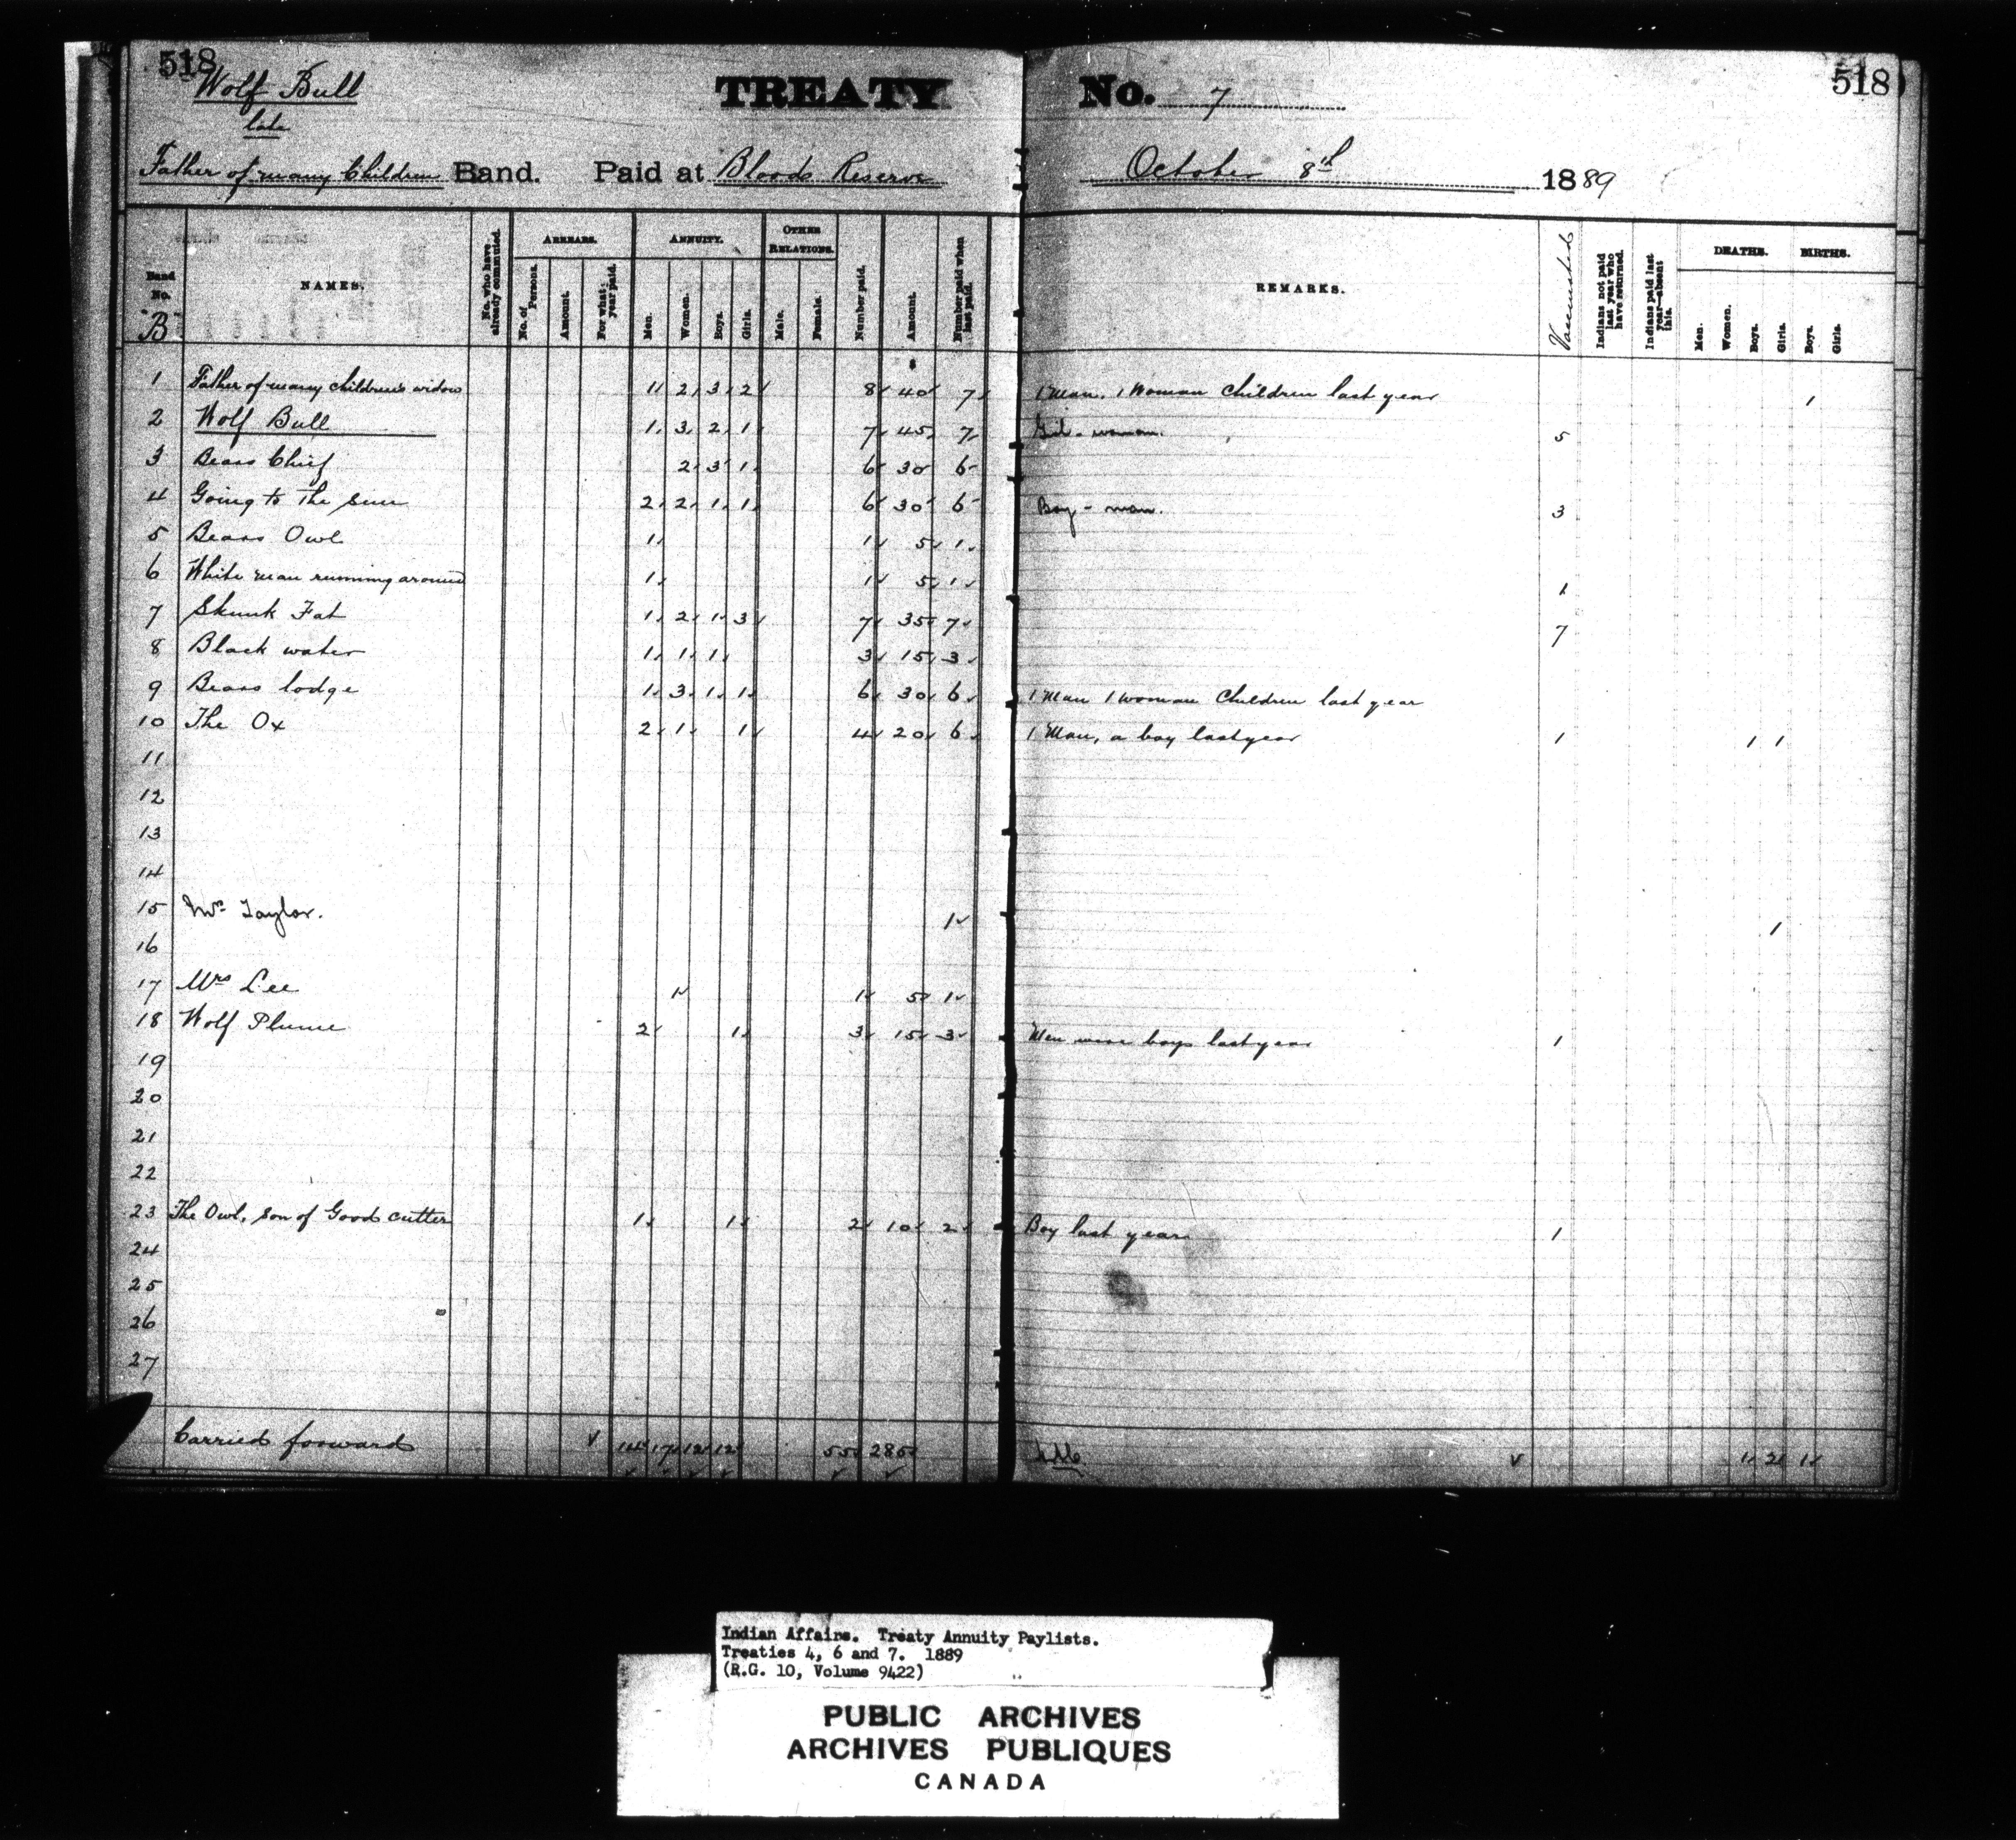 518 518
Wolf Bull TREATY No. 7
late
Father of many Children Band. Paid at Bloods Reserve October 8th 1889
Band No. "B" NAMES. No. who have already commuted. ARREARS. No. of Persons. Amount. For what year paid. ANNUITY. Men. Women. Boys. Girls. OTHER RELATIONS. Male. Female. Number paid. Amount. Number paid when last paid. REMARKS. Vaccinated Indians not paid last year who have returned. Indians paid last year—absent this. DEATHS. Men. Women. Boys. Girls. BIRTHS. Boys. Girls.
1 Father of many children's widow 1 2 3 2 8 40 7 1 Man, 1 Woman Children last year 1
2 Wolf Bull 1 3 2 1 7 45 7 Girl - woman. 5
3 Bears Chief 2 3 1 6 30 6
4 Going to the Sun 2 2 1 1 6 30 6 Boy - man. 3
5 Bears Owl 1 1 5 1
6 White man running around 1 1 5 1 1
7 Skunk Fat 1 2 1 3 7 35 7 7
8 Black water 1 1 1 3 15 3
9 Bears lodge 1 3 1 1 6 30 6 1 Man 1 woman Children last year
10 The Ox 2 1 1 4 20 6 1 Man, a boy last year 1 1 1
11
12
13
14
15 Mrs Taylor. 1 1
16
17 Mrs Lee 1 1 5 1
18 Wolf Plume 2 1 3 15 3 Men were boys last year 1
19
20
21
22
23 The Owl, son of Good cutter 1 1 2 10 2 Boy last year 1
24
25
26
27
Carried forward 14 17 12 12 55 285 1 2 1
Indian Affairs. Treaty Annuity Paylists.
Treaties 4, 6 and 7. 1889
(R.G. 10, Volume 9422)
PUBLIC ARCHIVES
ARCHIVES PUBLIQUES
CANADA